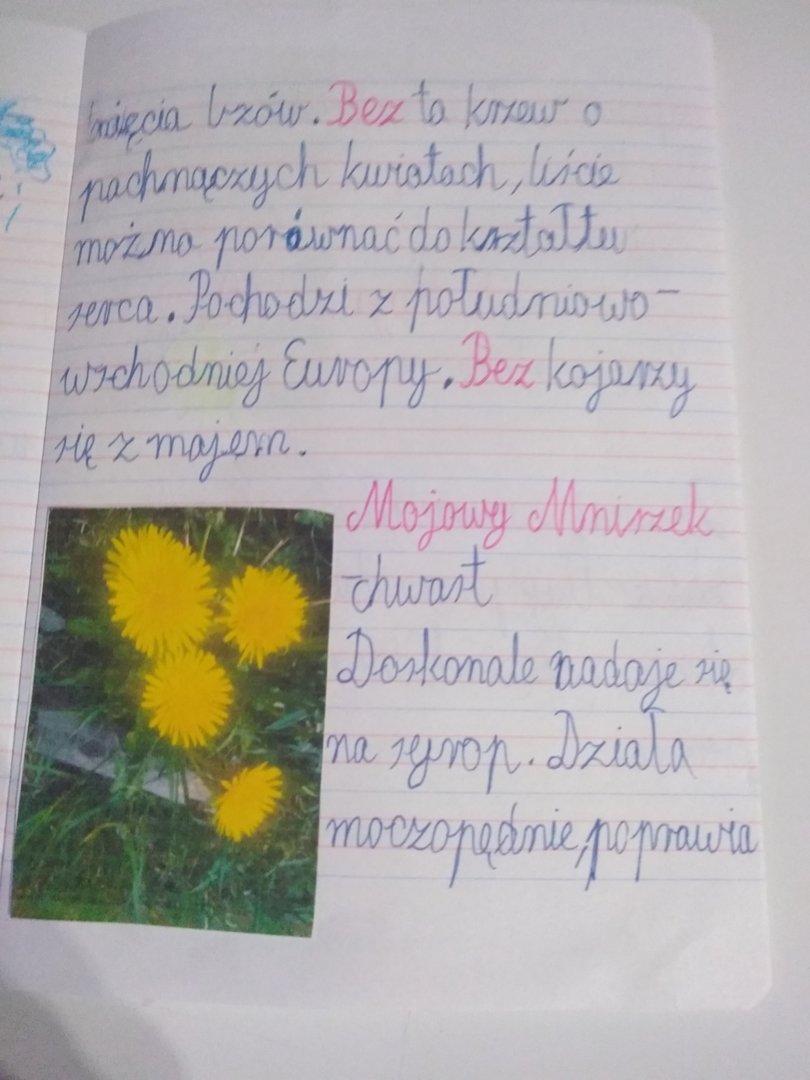 bzów. Bez to krzew o
pachnączych kwiatach, liście
możma porównać do kształtu
serca. Pochodzi z południowo-
wschodniej Europy. Bez kojarzy
się z majem.
Mojowy Mniszek
-chwast
Doskonale nadaje się
na syrop. Działa
moczopędnie, poprawia